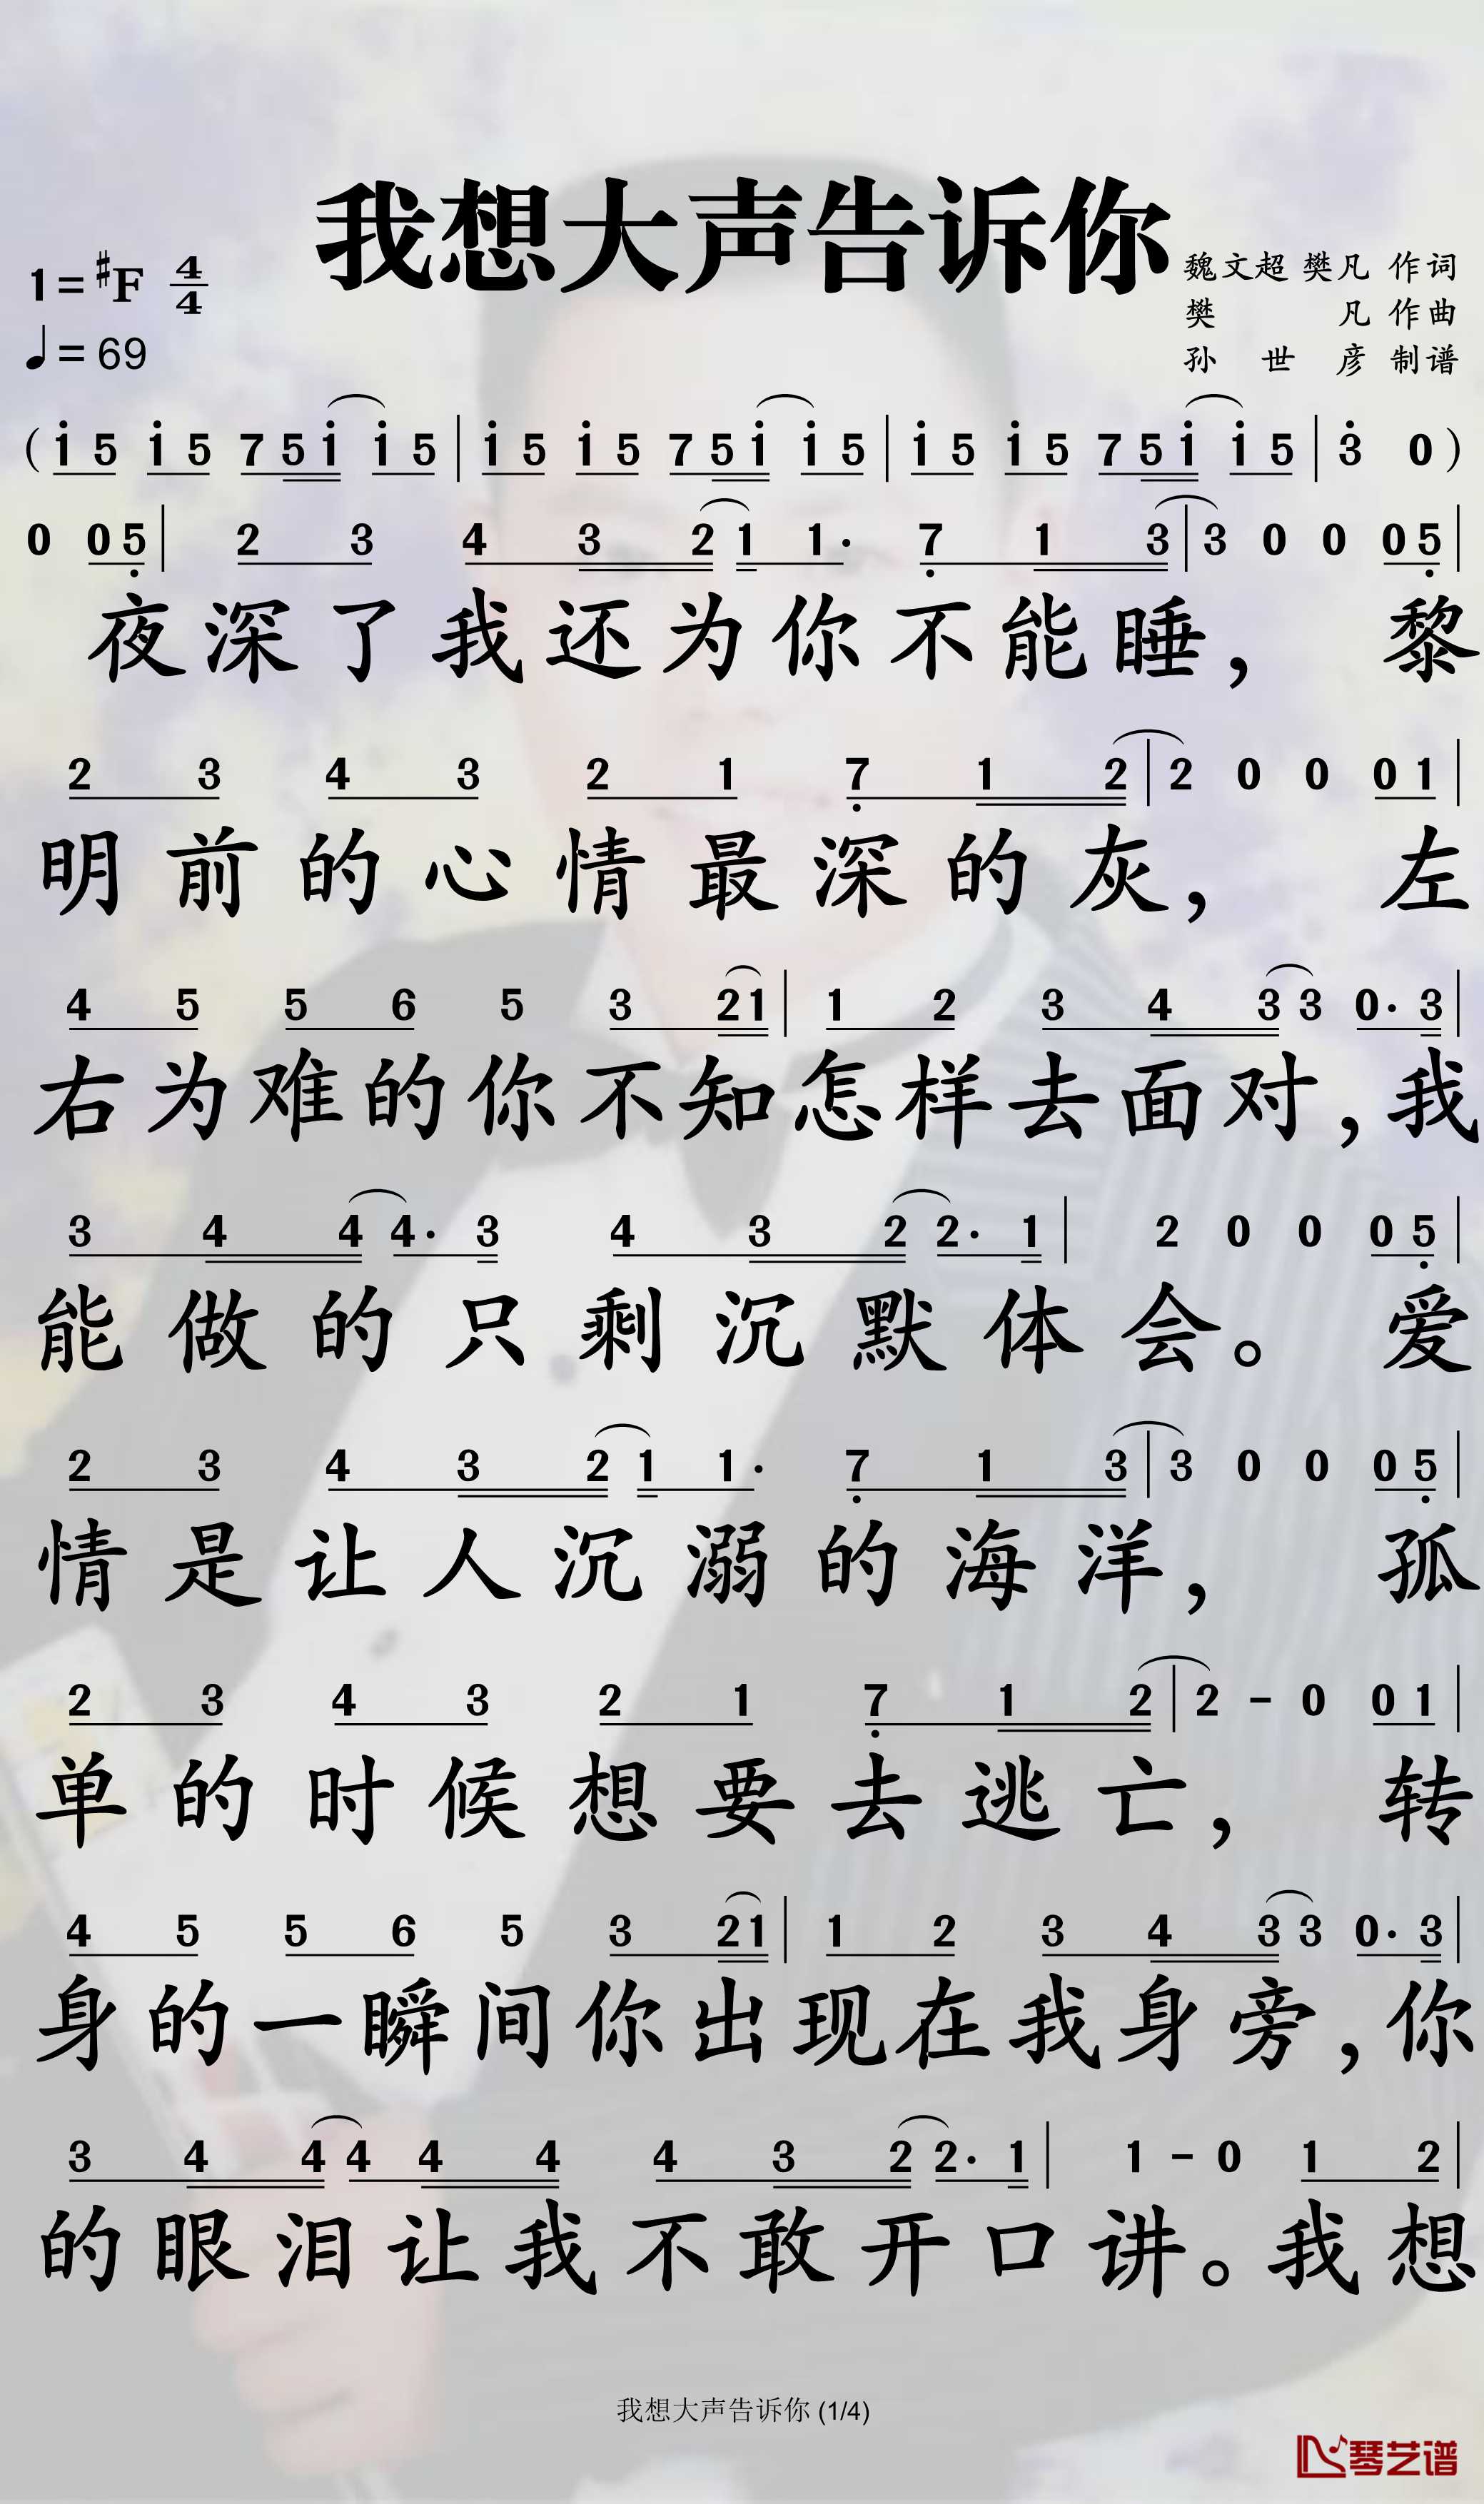 我想大声告诉你
1=♯F 4/4
魏文超 樊凡 作词
♩=69
樊 凡 作曲
孙 世 彦 制谱
(i̇ 5 i̇ 5 7 5 i̇ i̇ 5 | i̇ 5 i̇ 5 7 5 i̇ i̇ 5 | i̇ 5 i̇ 5 7 5 i̇ i̇ 5 | 3̇ 0)
0 0 5̣ | 2 3 4 3 2 1 1· 7̣ 1 3 | 3 0 0 0 5̣ |
夜深了我还为你不能睡， 黎
2 3 4 3 2 1 7̣ 1 2 | 2 0 0 0 1 |
明前的心情最深的灰， 左
4 5 5 6 5 3 2 1 | 1 2 3 4 3 3 0· 3 |
右为难的你不知怎样去面对，我
3 4 4 4· 3 4 3 2 2· 1 | 2 0 0 0 5̣ |
能做的只剩沉默体会。 爱
2 3 4 3 2 1 1· 7̣ 1 3 | 3 0 0 0 5̣ |
情是让人沉溺的海洋， 孤
2 3 4 3 2 1 7̣ 1 2 | 2 - 0 0 1 |
单的时候想要去逃亡， 转
4 5 5 6 5 3 2 1 | 1 2 3 4 3 3 0· 3 |
身的一瞬间你出现在我身旁，你
3 4 4 4 4 4 4 3 2 2· 1 | 1 - 0 1 2 |
的眼泪让我不敢开口讲。我想
我想大声告诉你 (1/4)
琴艺谱